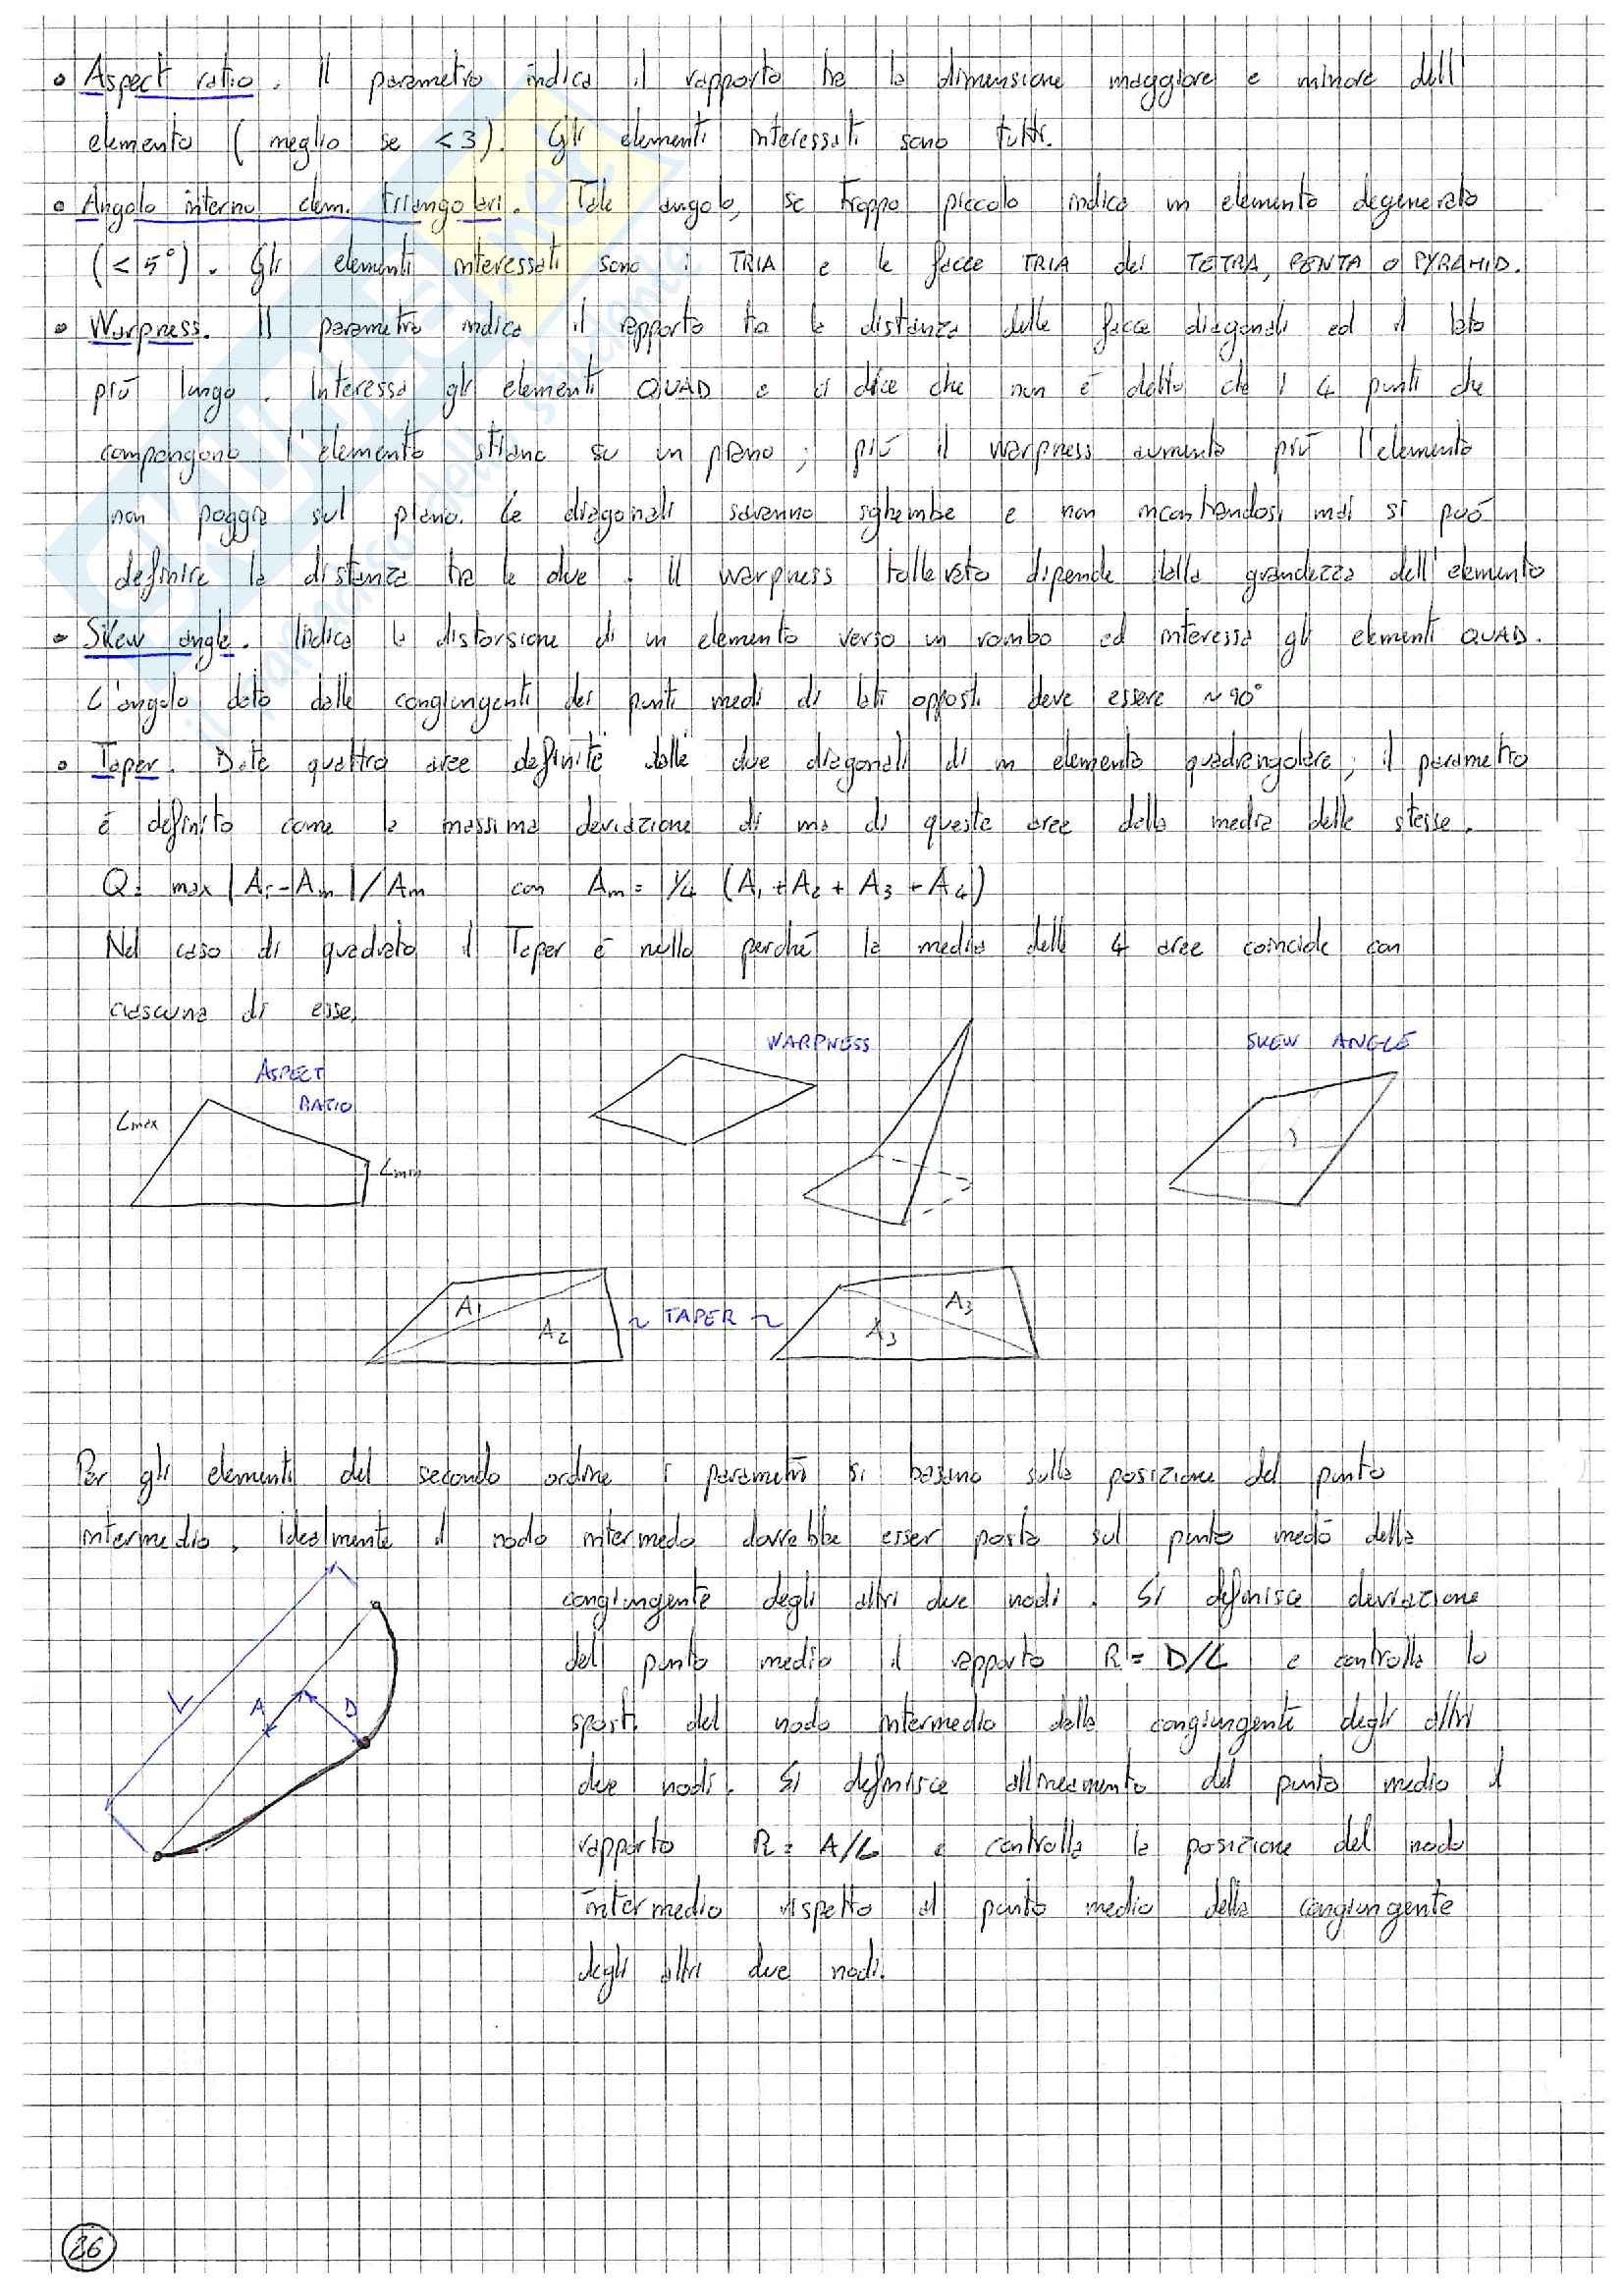 • Aspect ratio. Il parametro indica il rapporto tra la dimensione maggiore e minore dell'
elemento (meglio se <3). Gli elementi interessati sono tutti.
• Angolo interno elem. triangolari. Tale angolo, se troppo piccolo indica un elemento degenerato
(<5°). Gli elementi interessati sono i TRIA e le facce TRIA dei TETRA, PENTA o PYRAMID.
• Warpness. Il parametro indica il rapporto tra la distanza delle facce diagonali ed il lato
più lungo. Interessa gli elementi QUAD e ci dice che non è detto che i 4 punti che
compongono l'elemento stiano su un piano; più il warpness aumenta più l'elemento
non poggia sul piano. Le diagonali saranno sghembe e non incontrandosi mai si può
definire la distanza tra le due. Il warpness tollerato dipende dalla grandezza dell'elemento
• Skew angle. Indica la distorsione di un elemento verso un rombo ed interessa gli elementi QUAD.
L'angolo dato dalle congiungenti dei punti medi di lati opposti deve essere ~90°
• Taper. Date quattro aree definite dalle due diagonali di un elemento quadrangolare, il parametro
è definito come la massima deviazione di una di queste aree dalla media delle stesse.
Q= max |Ai-Am|/Am con Am= 1/4 (A1+A2+A3+A4)
Nel caso di quadrato il Taper è nullo perché la media delle 4 aree coincide con
ciascuna di esse.
WARPNESS
SKEW ANGLE
ASPECT
RATIO
Lmax
Lmin
A1
A2
~ TAPER ~
A3
A3
Per gli elementi del secondo ordine i parametri si basano sulla posizione del punto
intermedio. Idealmente il nodo intermedo dovrebbe esser posto sul punto medo della
congiungente degli altri due nodi. Si definisce deviazione
del punto medio il rapporto R= D/L e controlla lo
spost. del nodo intermedio dalla congiungente degli altri
due nodi. Si definisce allineamento del punto medio il
rapporto R= A/L e controlla la posizione del nodo
intermedio rispetto al punto medio della congiungente
degli altri due nodi.
L
A
D
36